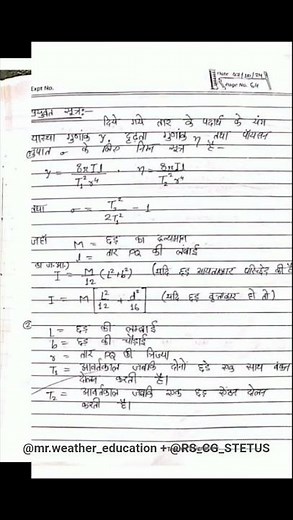 Expt No.
Date 02/10/24
Page No. 64
प्रयुक्त सूत्र:-
दिये गये तार के पदार्थ के यंग
प्रत्यास्था गुणांक y, दृढ़ता गुणांक η तथा पॉयसन
अनुपात σ के लिए निम्न सूत्र है-
y = 8πIl / T₁²r⁴ , η = 8πIl / T₂²r⁴
तथा σ = T₂² / 2T₁² - 1
जहाँ M = छड़ का द्रव्यमान
l = तार PQ की लंबाई
I = M/12 (L²+b²) (यदि छड़ आयताकार परिच्छेद की है
I = M [L²/12 + d²/16] (यदि छड़ वृत्ताकार हो तो)
② L = छड़ की लम्बाई
b = छड़ की चौड़ाई
r = तार PQ की त्रिज्या
T₁ = आवर्तकाल जबकि दोनों छड़े एक साथ
दोलन करती है।
T₂ = आवर्तकाल जबकि एक छड़ दोलन
करती है।
@mr.weather_education + @RS_CG_STETUS